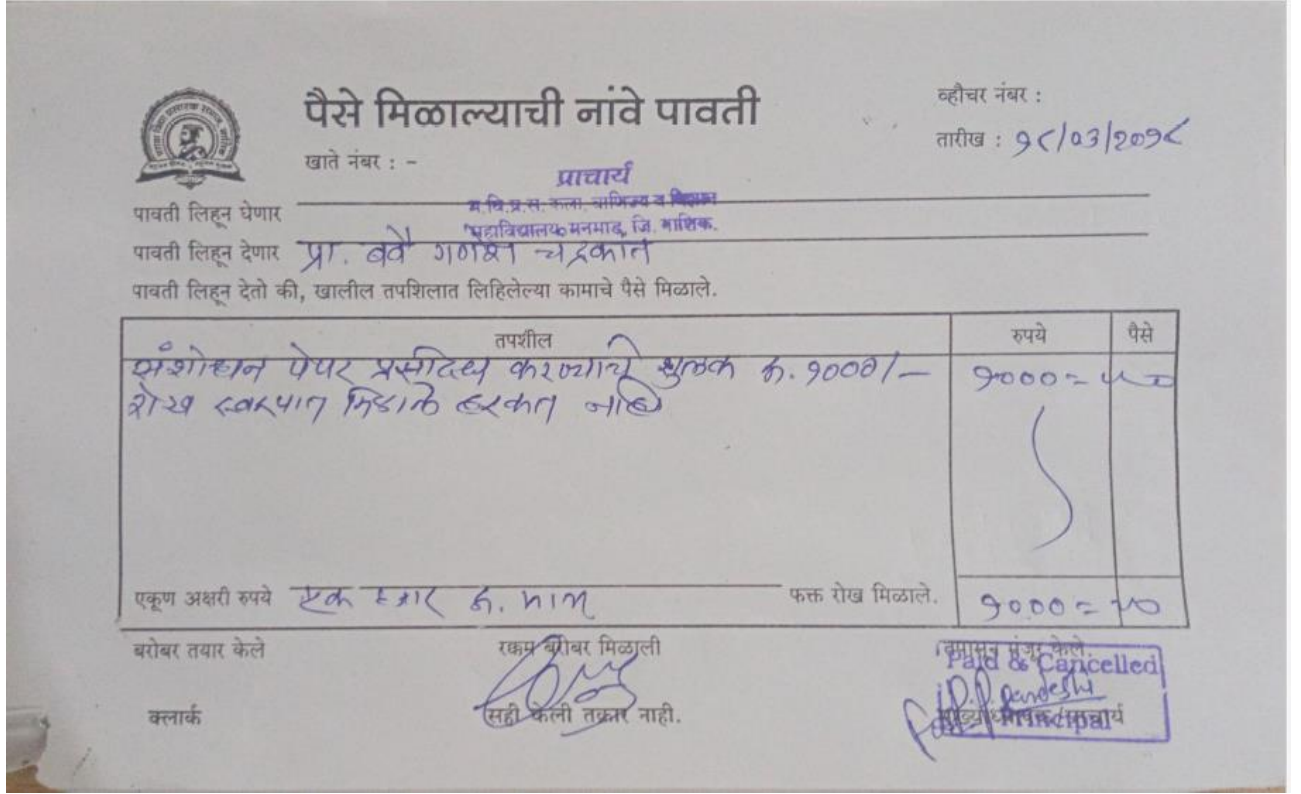 पैसे मिळाल्याची नांवे पावती
व्हौचर नंबर :
तारीख : १८/०३/२०१८
खाते नंबर : -
प्राचार्य
म.वि.प्र.स. कला, वाणिज्य व विज्ञान
महाविद्यालय मनमाड, जि. नाशिक.
पावती लिहून घेणार
पावती लिहून देणार प्रा. बर्वे गणेश चंद्रकांत
पावती लिहून देतो की, खालील तपशिलात लिहिलेल्या कामाचे पैसे मिळाले.
तपशील रुपये पैसे
संशोधन पेपर प्रसिद्धि करण्याचे शुल्क रु. १०००/- १०००=
रोख स्वरुपात मिळाले हरकत नाही
एकूण अक्षरी रुपये एक हजार रु. मात्र फक्त रोख मिळाले. १०००=
बरोबर तयार केले रक्कम बरोबर मिळाली तपासून मंजूर केले.
Paid & Cancelled
क्लार्क सही केली तक्रार नाही. मुख्याध्यापक/प्राचार्य
Principal